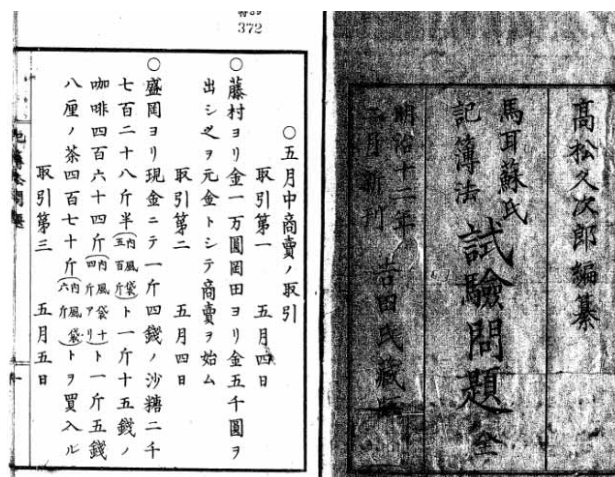 高松久次郎編纂
馬耳蘇氏
記簿法
試驗問題 全
明治十二年
二月新刊
吉田氏藏
特39
372
○五月中商賣ノ取引
取引第一 五月四日
○藤村ヨリ金一万圓岡田ヨリ金五千圓ヲ
出シ之ヲ元金トシテ商賣ヲ始ム
取引第二 五月四日
○盛岡ヨリ現金ニテ一斤四錢ノ沙糖二千
七百二十八斤半(内風袋五百斤)ト一斤十五錢ノ
咖啡四百六十四斤(内風袋十四斤アリ)ト一斤五錢
八厘ノ茶四百七十斤(内風袋六斤)トヲ買入ル
取引第三 五月五日